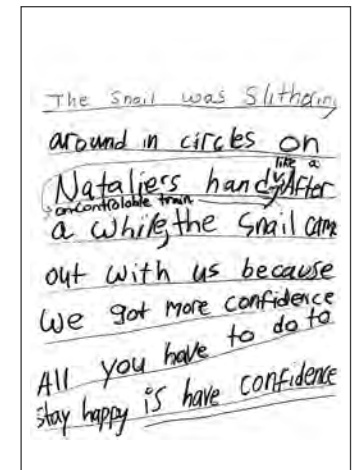 The Snail was Slithering
around in circles on
like a
Nataliers hand, After
oncontrolable train
a while, the Snail came
out with us because
we got more confidence
All you have to do to
stay happy is have confidence